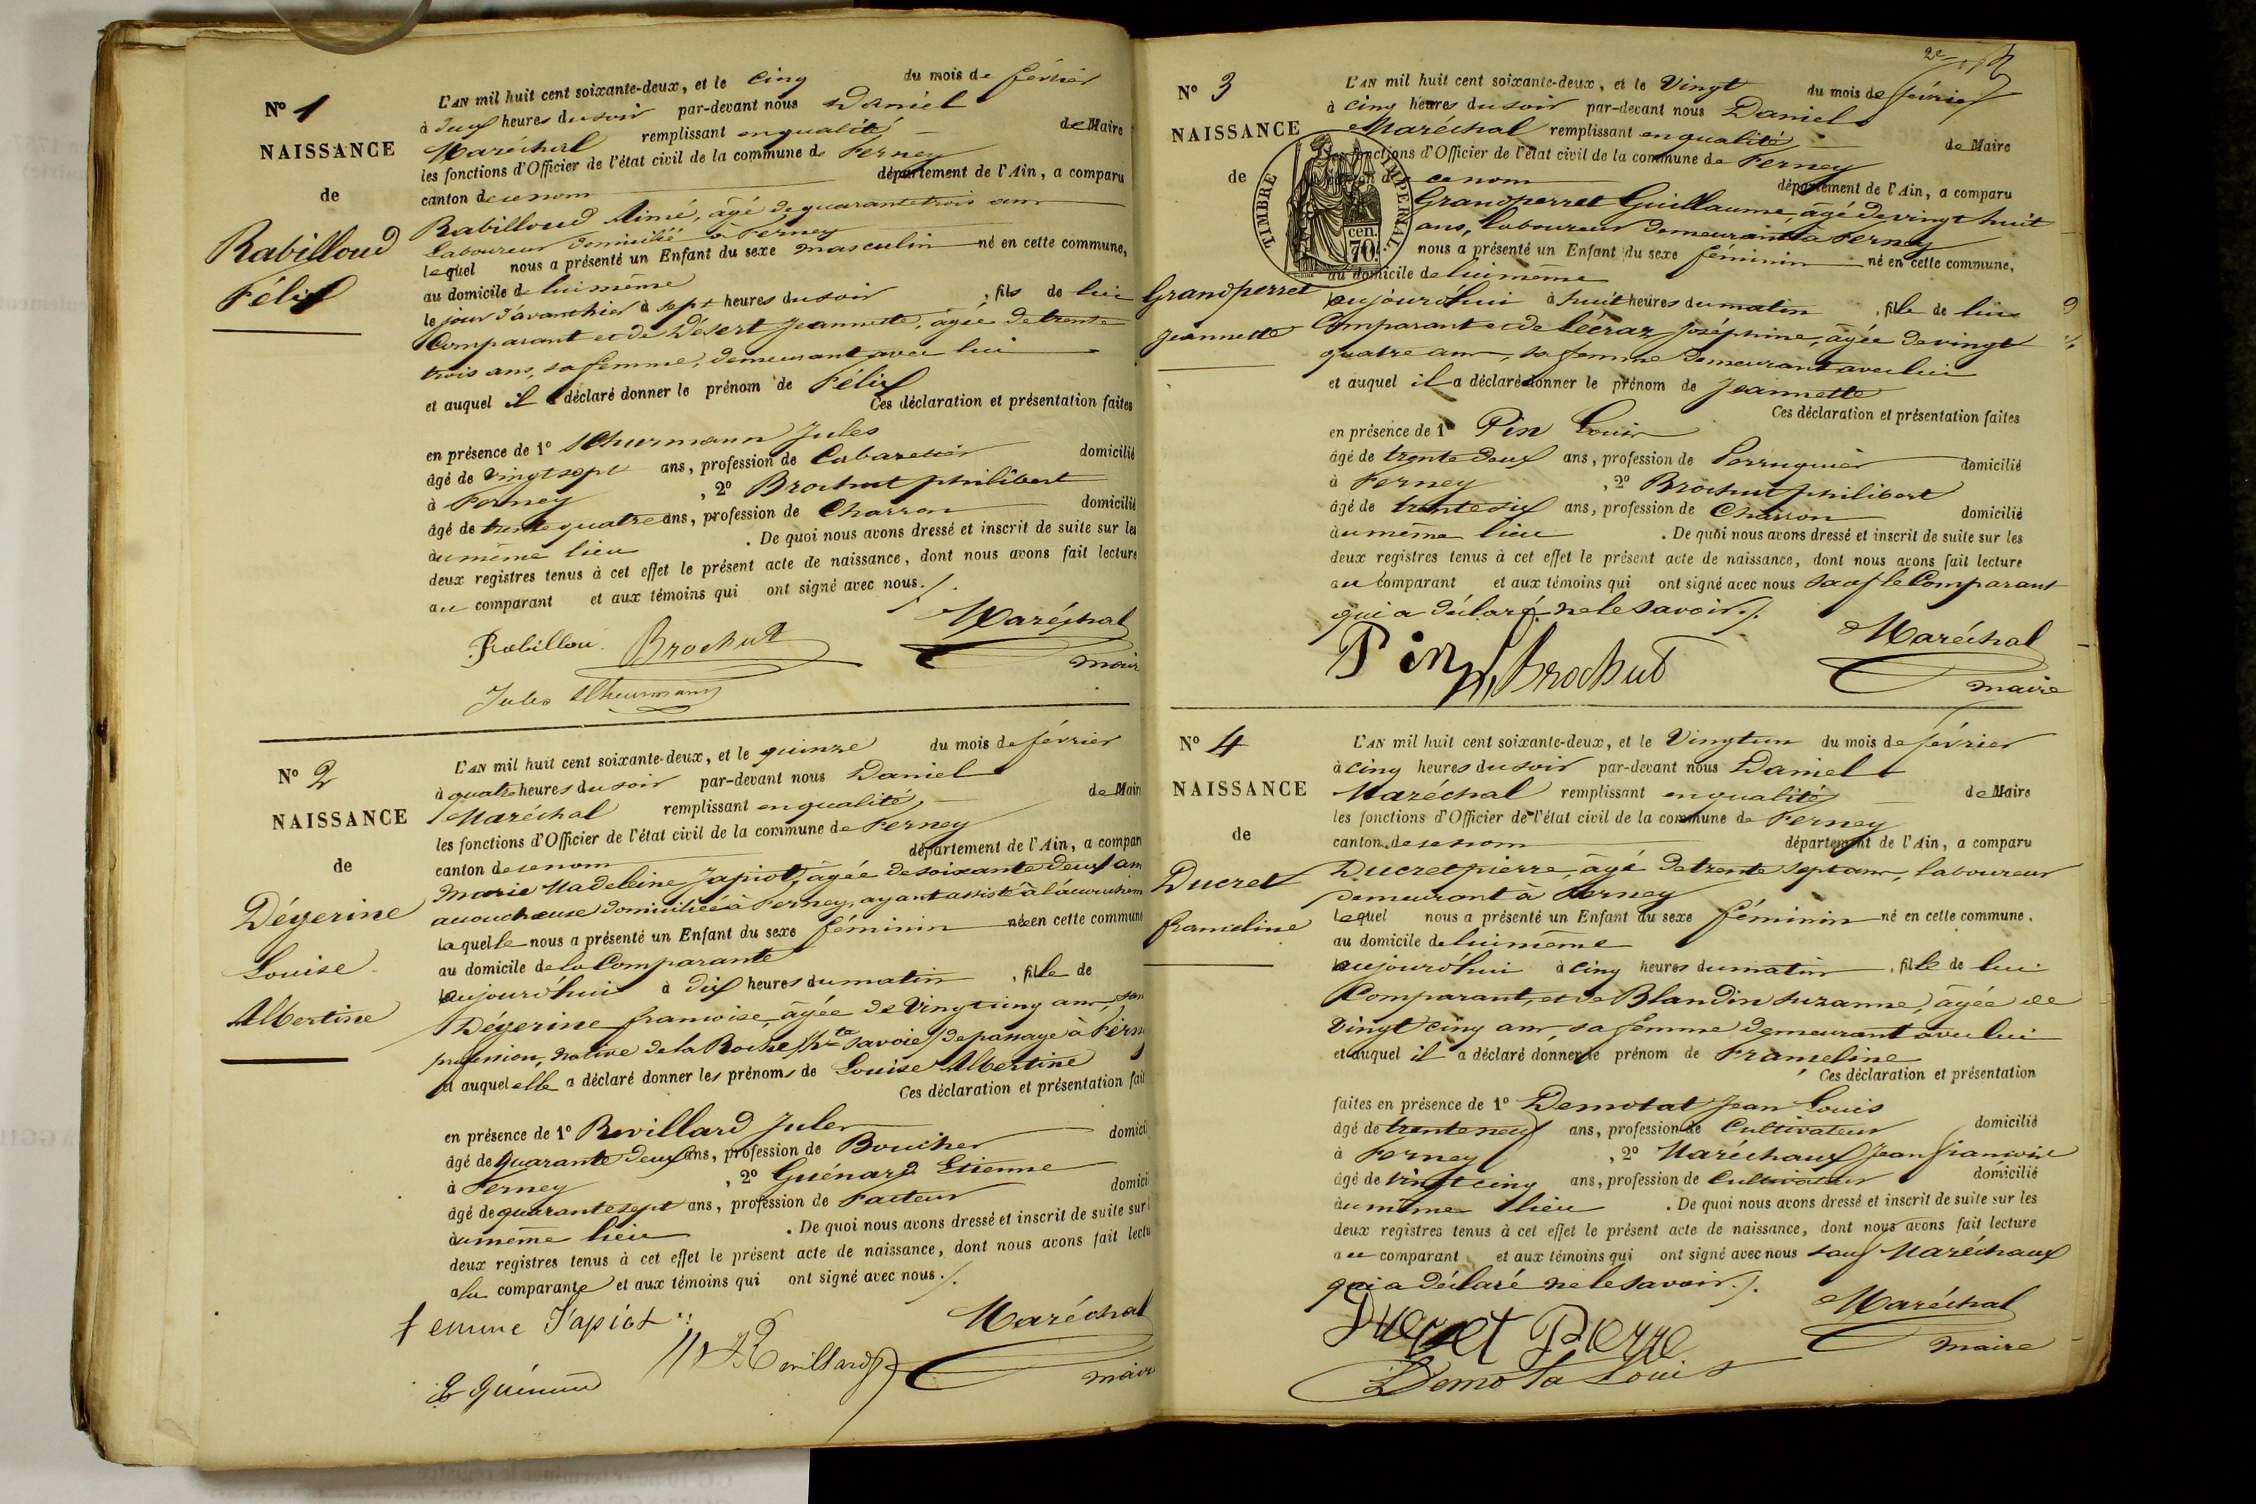 N° 1
NAISSANCE
de
Rabilloud
Félix
L'AN mil huit cent soixante-deux, et le cinq du mois de février
à deux heures du soir par-devant nous Daniel
Maréchal remplissant en qualité de Maire
les fonctions d'Officier de l'état civil de la commune de Ferney
canton de ce nom département de l'Ain, a comparu
Rabilloud Aimé, âgé de quarante trois ans
Laboureur domicilié à Ferney
lequel nous a présenté un Enfant du sexe masculin né en cette commune,
au domicile de lui même
le jour d'avant hier à sept heures du soir, fils de lui
Comparant et de Désert Jeannette, âgée de trente
trois ans, sa femme, demeurant avec lui
et auquel il a déclaré donner le prénom de Félix
Ces déclaration et présentation faites
en présence de 1° Schurmann Jules
âgé de vingt sept ans, profession de Cabaretier domicilié
à Ferney, 2° Brochut philibert
âgé de trente quatre ans, profession de Charron domicilié
au même lieu. De quoi nous avons dressé et inscrit de suite sur les
deux registres tenus à cet effet le présent acte de naissance, dont nous avons fait lecture
au comparant et aux témoins qui ont signé avec nous./.
Rabillou Brochut Maréchal
maire
Jules Schurmann
N° 2
NAISSANCE
de
Dégerine
Louise
Albertine
L'AN mil huit cent soixante-deux, et le quinze du mois de février
à quatre heures du soir par-devant nous Daniel
Maréchal remplissant en qualité de Maire
les fonctions d'Officier de l'état civil de la commune de Ferney
canton de ce nom département de l'Ain, a compar
Marie Madeleine Japiot, âgée de soixante deux ans
accoucheuse domiciliée à Ferney, ayant assisté à l'accouchem
laquelle nous a présenté un Enfant du sexe féminin née en cette commune
au domicile de la Comparante
aujourd'hui à dix heures du matin, fille de
Dégerine françoise, âgée de vingt cinq ans, san
profession, native de la Roche (hte Savoie) de passage à Fern
et auquel elle a déclaré donner les prénoms de Louise Albertine
Ces déclaration et présentation fait
en présence de 1° Revillard Jules
âgé de quarante deux ans, profession de Boucher domici
à Ferney, 2° Guénard Etienne
âgé de quarante sept ans, profession de Facteur domici
au même lieu. De quoi nous avons dressé et inscrit de suite sur l
deux registres tenus à cet effet le présent acte de naissance, dont nous avons fait lectu
à la comparante et aux témoins qui ont signé avec nous./.
femme Japiot Maréchal
Revillard
maire
N° 3
NAISSANCE
de
Grandperret
Jeannette
TIMBRE IMPERIAL
70 cen.
L'AN mil huit cent soixante-deux, et le Vingt du mois de février
à cinq heures du soir par-devant nous Daniel
Maréchal remplissant en qualité de Maire
les fonctions d'Officier de l'état civil de la commune de Ferney
canton de ce nom département de l'Ain, a comparu
Grandperret Guillaume, âgé de vingt huit
ans, laboureur demeurant à Ferney
nous a présenté un Enfant du sexe féminin né en cette commune,
au domicile de lui même
aujourd'hui à huit heures du matin, fille de lui
Comparant et de Lécraz Joséphine, âgée de vingt
quatre ans, sa femme demeurant avec lui
et auquel il a déclaré donner le prénom de Jeannette
Ces déclaration et présentation faites
en présence de 1° Pin Louis
âgé de trente deux ans, profession de Perruquier domicilié
à Ferney, 2° Brochut philibert
âgé de trente six ans, profession de Charron domicilié
au même lieu. De quoi nous avons dressé et inscrit de suite sur les
deux registres tenus à cet effet le présent acte de naissance, dont nous avons fait lecture
au comparant et aux témoins qui ont signé avec nous sauf le Comparant
qui a déclaré ne le savoir./.
Pin Brochut Maréchal
maire
N° 4
NAISSANCE
de
Ducret
françeline
L'AN mil huit cent soixante-deux, et le Vingt un du mois de février
à cinq heures du soir par-devant nous Daniel
Maréchal remplissant en qualité de Maire
les fonctions d'Officier de l'état civil de la commune de Ferney
canton de ce nom département de l'Ain, a comparu
Ducret pierre, âgé de trente sept ans, laboureur
demeurant à Ferney
lequel nous a présenté un Enfant du sexe féminin né en cette commune,
au domicile de lui même
aujourd'hui à cinq heures du matin, fille de lui
Comparant, et de Blandin Suzanne, âgée de
vingt cinq ans sa femme demeurant avec lui
et auquel il a déclaré donner le prénom de Françeline
Ces déclaration et présentation
faites en présence de 1° Demolat Jean Louis
âgé de trente neuf ans, profession de Cultivateur domicilié
à Ferney, 2° Maréchaux Jean françois
âgé de vingt cinq ans, profession de Cultivateur domicilié
au même lieu. De quoi nous avons dressé et inscrit de suite sur les
deux registres tenus à cet effet le présent acte de naissance, dont nous avons fait lecture
au comparant et aux témoins qui ont signé avec nous sauf Maréchaux
qui a déclaré ne le savoir./.
Ducret Pierre Maréchal
maire
Demola Louis